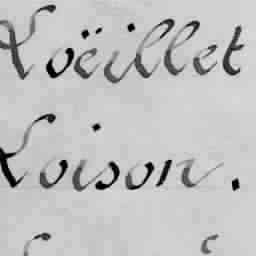 Loëillet
Loison.